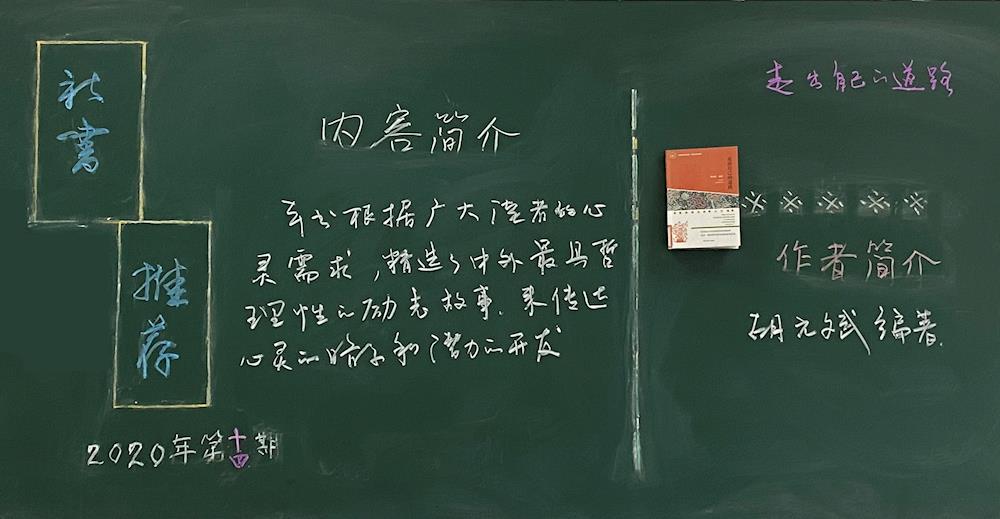 新書
推荐
2020年第十四期
内容简介
本书根据广大读者的心
灵需求，精选了中外最具哲
理性的励志故事.来传达
心灵的暗示和潜力的开发
走出自己的道路
※※※※※
作者简介
胡元斌编著.